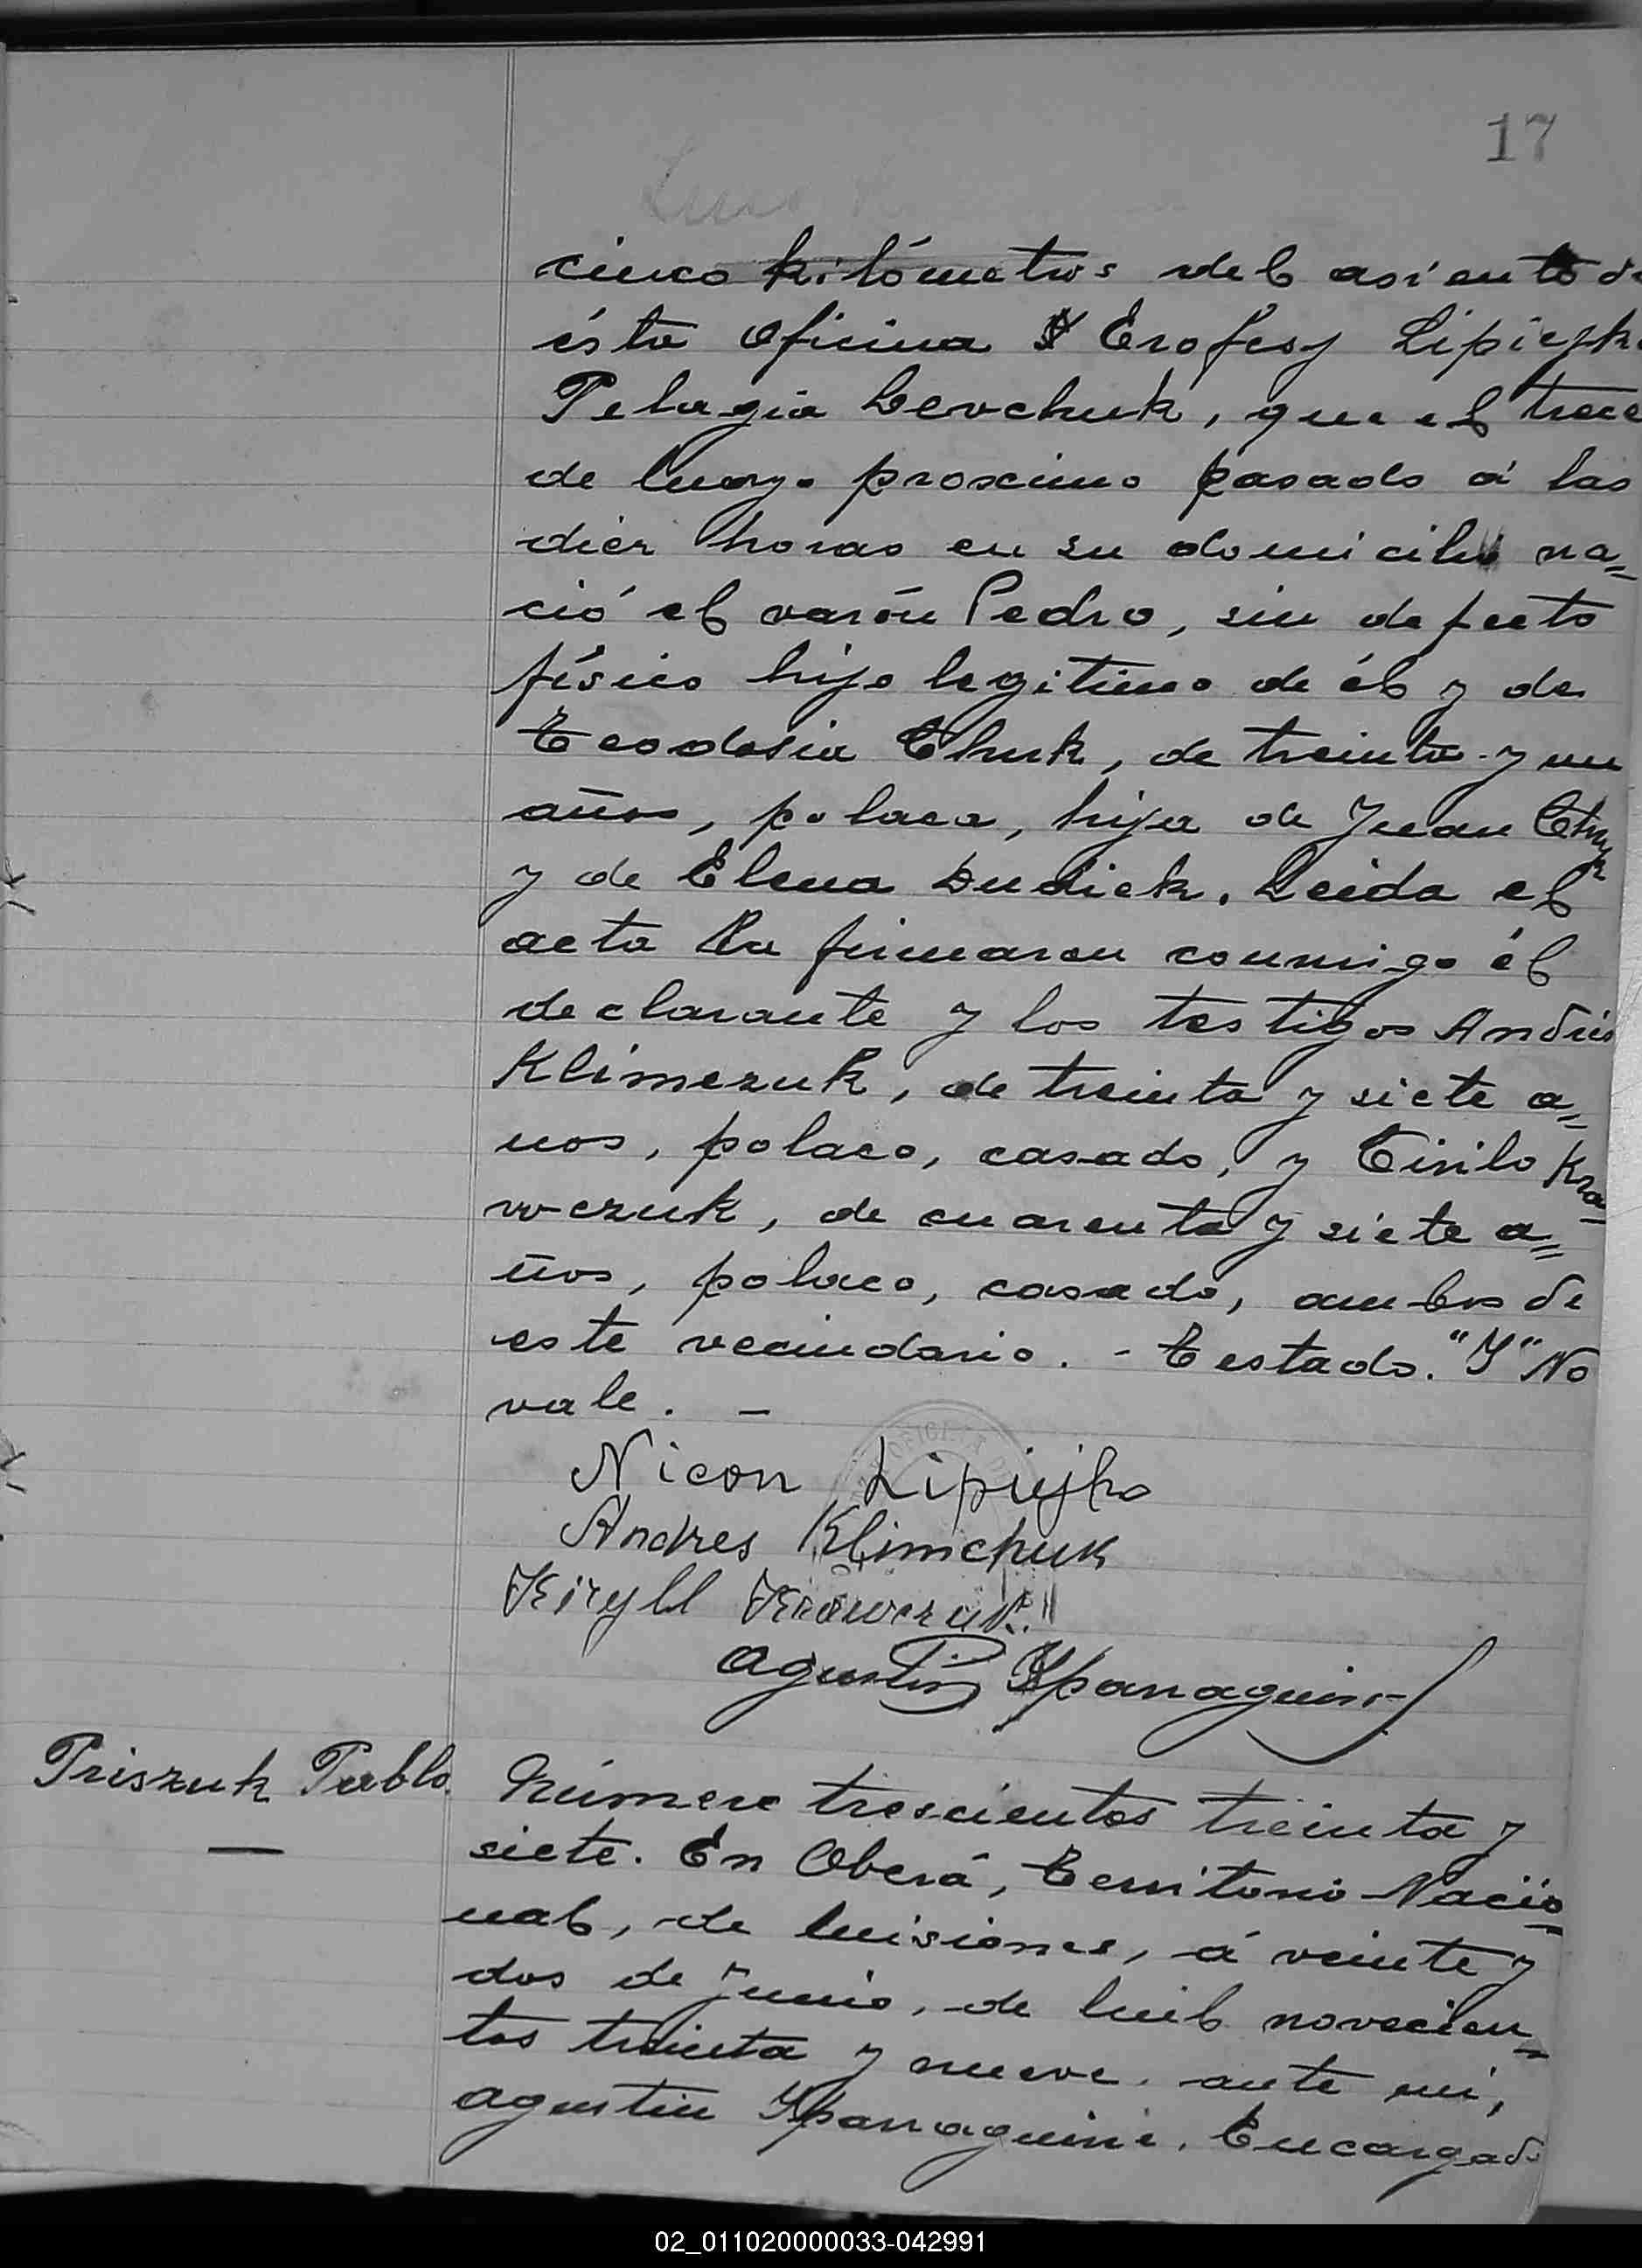 17
cinco kilómetros del asiento de
ésta Oficina Y Erofey Lipieyko
Pelagia Levchuk, que el trece
de Mayo proximo pasado á las
diez horas en su domicilio na=
ció el varón Pedro, sin defecto
físico hijo legitimo de él y de
Teodosia Chuk, de treinta y un
años, polaca, hija de Juan
y de Elena Dudick. Leida el
acta la firmaron conmigo él
declarante y los testigos Andrés
Klimezuk, de treinta y siete a=
nos, polaco, casado, y Cirilo Kra=
wczuk, de cuarenta y siete a=
ños, polaco, casado, ambos de
este vecindario. - Testado. "Y" No
vale. -
Nicon Lipiejko
Andres Klimchuk
Kiryll Krawczuk
Agustin Yparraguirre
Priszuk Pablo.
Número trescientos treinta y
siete. En Oberá, Territorio Nacio=
nal, de Misiones, á veinte y
dos de Junio, de mil novecien=
tos treinta y nueve. ante mi,
Agustin Yparraguirre, Encargado
02_011020000033-042991